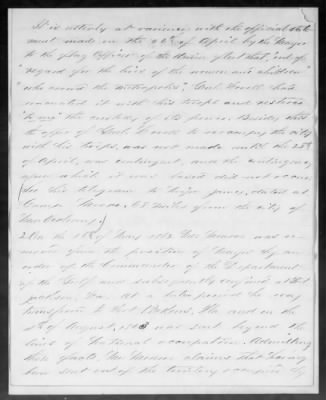 It is utterly at variance with the official state
ment made on the 26th of April by the Mayor
to the flag Officer of the Union fleet that, "out of
"regard for the lives of the women and children
who the metropolis," Genl. Lovell had
evacuated it with his troops and restored
"to me" the custody of its power. Besides, that
the offer of Genl. Lovell to reoccupy the city
with his troops, was not made until the 28th
of April, was contingent, and the contingency
upon which it was based did not occur.
See his telegram to Major James, dated at
Camp Moore, 78 miles from the city of
New Orleans.)
2. On the 16th of May 1862 Mr Monroe was re-
moved from the position of Mayor by an
order of the Commander of the Department
of the Gulf and subsequently confined at Fort
Jackson, La. At a later period he was
transferred to Fort Pickens, Fla. and on the
of August, 1863 was sent beyond the
lines of National occupation. Admitting
these facts, Mr Monroe claims that having
been sent out of the territory occupied by